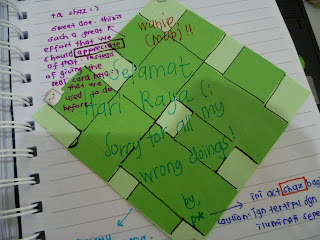 ta shaz :)
sweet doe. this is
such a great
effort that we
should appreciate
of that instead
of giving the
real card raya
that we
used to do
before
wuhip
(mop)!!
Selamat
Hari Raya (:
Sorry for all my
wrong doings!
by,
ini act shaz bagi
caution: jgn tertipu dgn
iluminasi